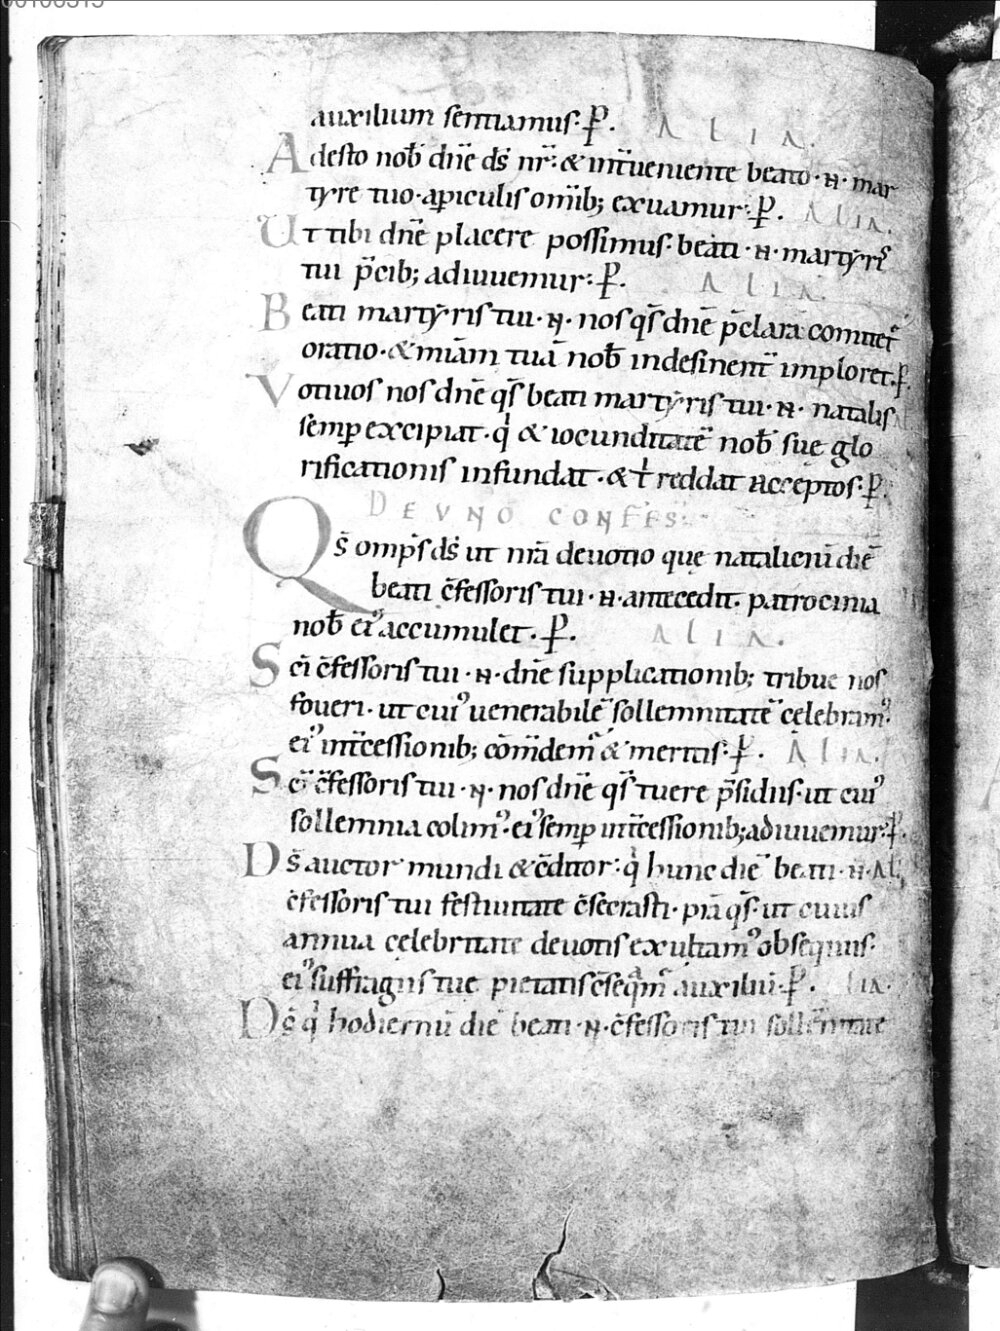 auxilium sentiamus· ꝑ. ALIA.
Adesto nob̄ dn̄e ds̄ nr̄· & int̄ueniente beato· N· mar
tyre tuo· a ꝑiculis om̄ib; exuamur· ꝑ. ALIA.
Ut tibi dn̄e placere possimus· beati· N· martyris
tui p̄cib; adiuuemur· ꝑ. ALIA.
Beati martyris tui· N· nos qs̄ dn̄e p̄clara comitet᷑
oratio· & miām tuā nob̄ indesinent̄ imploret· ꝑ.
Votiuos nos dn̄e qs̄ beati martyris tui· N· natalis
semꝑ excipiat· q' & iocunditatē nob̄ sue glo
rificationis infundat· & t̄ reddat acceptos· ꝑ.
DE UNO CONFES̄
Qs̄ omps̄ ds̄ ut nr̄a deuotio quę natalicnū diē
beati c̄fessoris tui· N· antecedit· patrocinia
nob̄ ei' accumulet· ꝑ. ALIA.
Sc̄i c̄fessoris tui· N· dn̄e supplicationib; tribue nos
foueri· ut cui' uenerabilē sollemnitatē celebram'·
ei' int̄cessionib; cōm̄dem' & meritis· ꝑ. ALIA.
Sc̄i c̄fessoris tui· N· nos dn̄e qs̄ tuere p̄sidiis· ut cui'
sollemnia colim'· ei' semꝑ int̄cessionib; adiuuemur· ꝑ.
Ds̄ auctor mundi & c̄ditor· q' hunc diē beati· N· AL
c̄fessoris tui festiuitate c̄secrasti· p̄ia qs̄· ut cuius
annua celebritate deuotis exultam' obsequiis·
ei' suffragiis tue pietatis c̄seq̄m᷑ auxiliū· ꝑ. ALIA.
Ds̄ q' hodiernū diē beati· N· c̄fessoris tui soll̄emnitate